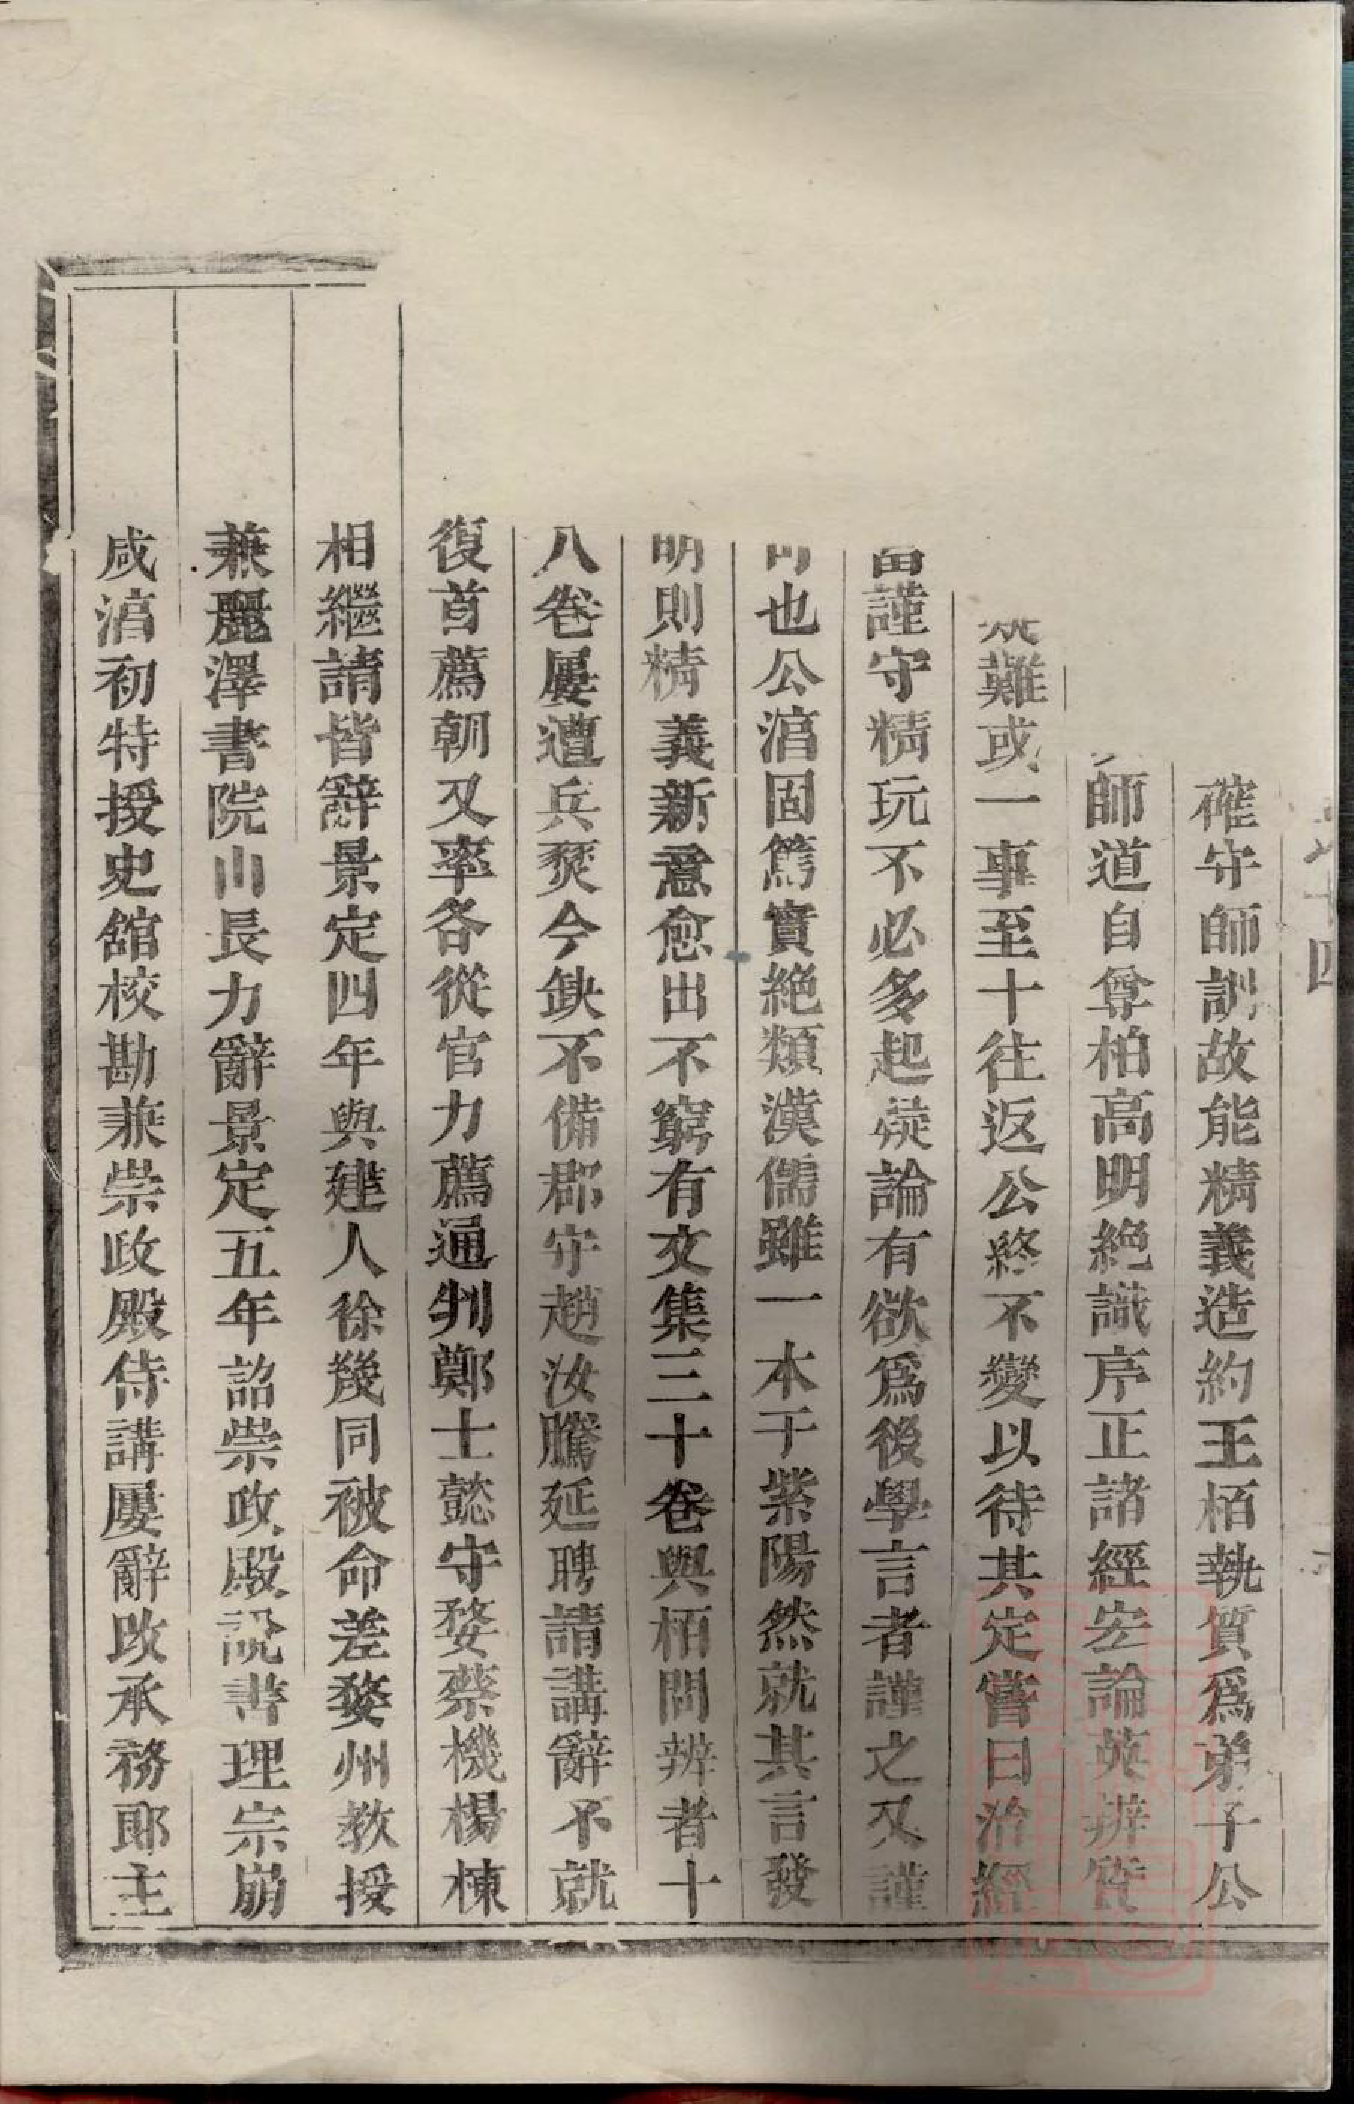 十四
確守師訓故能精義造約王栢執質爲弟子公
師道自尊柏高明絶識序正諸經宏論英辨質
難或一事至十往返公終不變以待其定嘗曰治經
當謹守精玩不必多起疑論有欲爲後學言者謹之又謹
可也公淳固篤實絶類漢儒雖一本于紫陽然就其言發
明則精義新意愈出不窮有文集三十卷與栢問辨者十
八卷屢遭兵燹今缺不備郡守趙汝騰延聘請講辭不就
復首薦朝又率各從官力薦通判鄭士懿守婺蔡機楊棟
相繼請皆辭景定四年與建人徐幾同被命差婺州教授
兼麗澤書院山長力辭景定五年詔崇政殿説書理宗崩
咸淳初特授史舘校勘兼崇政殿侍講屢辭改承務郎主